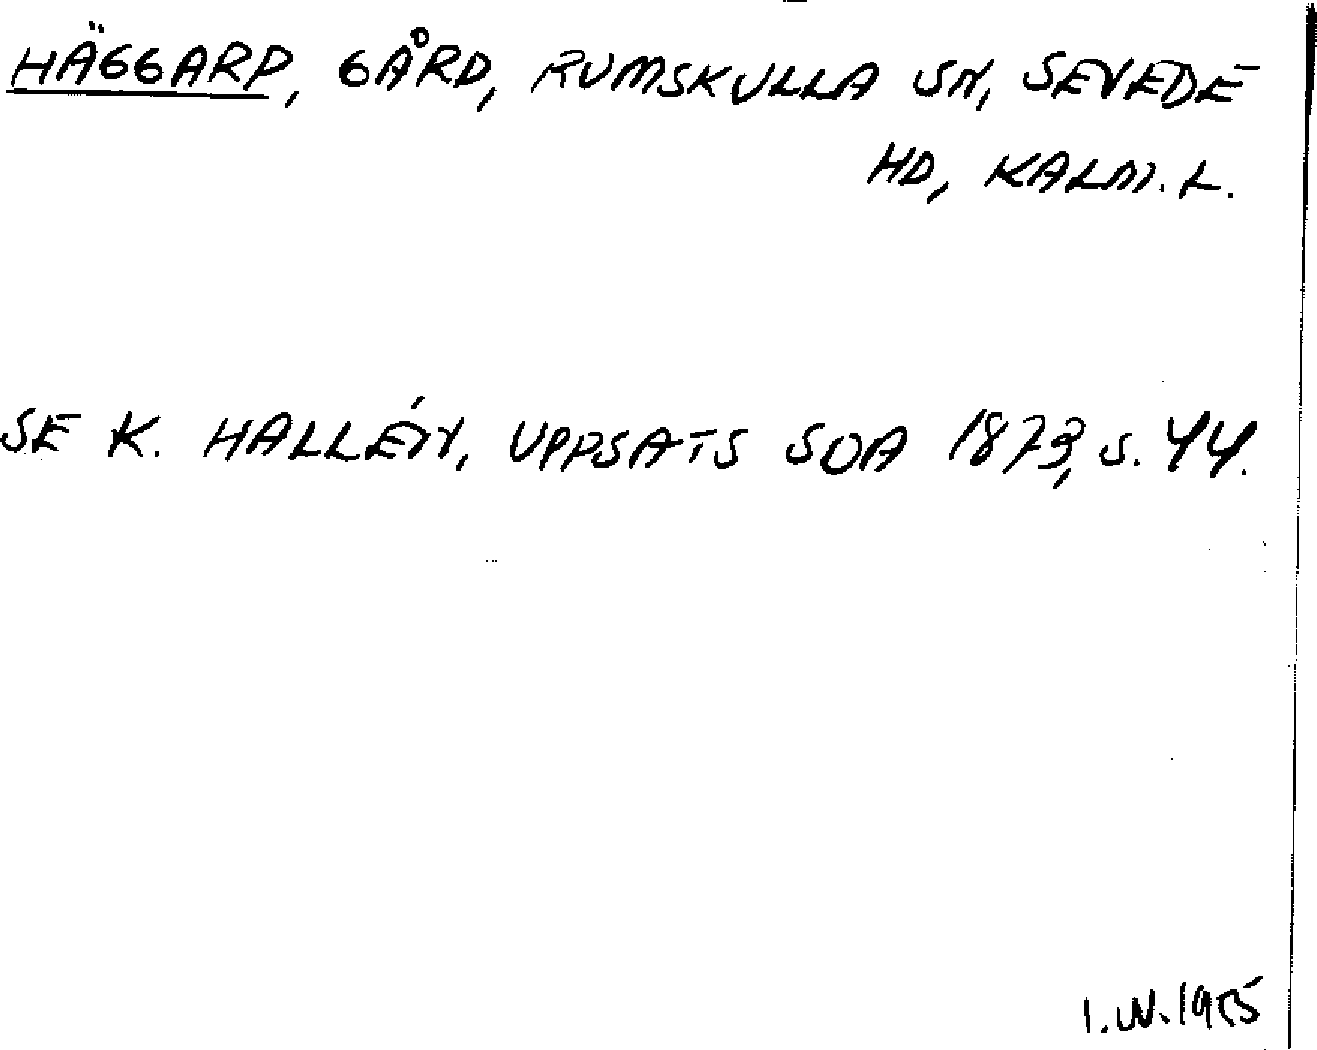 HÄGGARP, GÅRD, RUMSKULLA SN, SEVEDE
HD, KALM. L.
SE K. HALLÉN, UPPSATS SOA 1873, S. 44.
I.W. 1955